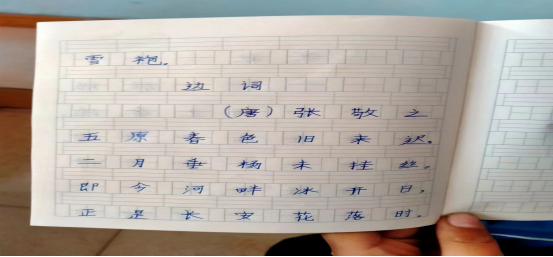 雪袍。
边词
（唐）张敬之
五原春色旧来迟，
二月垂杨未挂丝。
即今河畔冰开日，
正是长安花落时。